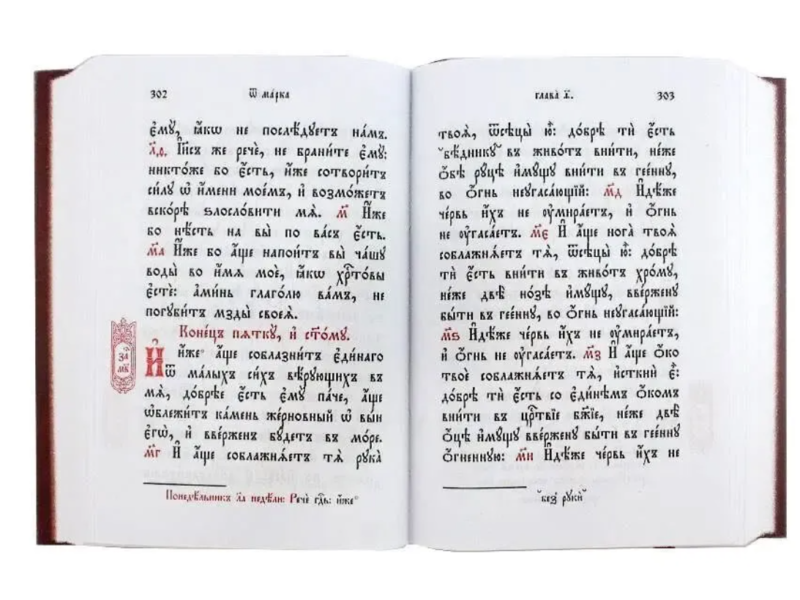 302 Ѿ ма́рка
є҆мꙋ̀, ꙗ҆́кѡ не послѣ́дꙋетъ на́мъ.
л҃ѳ. І҆и҃съ же речѐ, не брани́те є҆мꙋ̀:
никто́же бо є҆́сть, и҆́же сотвори́тъ
си́лꙋ ѡ҆ и҆́мени мое́мъ, и҆ возмо́жетъ
вско́рѣ ѕлосло́вити мѧ̀. м҃ И҆́же
бо нѣ́сть на вы̀ по ва́съ є҆́сть.
м҃а И҆́же бо а҆́ще напои́тъ вы̀ ча́шꙋ
воды̀ во и҆́мѧ моѐ, ꙗ҆́кѡ хрⷭ҇то́вы
є҆стѐ: а҆ми́нь глаго́лю ва́мъ, не
погꙋби́тъ мзды̀ своеѧ̀.
Коне́цъ пѧткꙋ̀, и҆ сꙋббѡ́тѣ.
И҆ и҆́же а҆́ще соблазни́тъ є҆ди́наго
Ѿ ма́лыхъ си́хъ вѣ́рꙋющихъ въ
мѧ̀, добрѣ́е є҆́сть є҆мꙋ̀ па́че, а҆́ще
ѡ҆блежи́тъ ка́мень же́рновный ѡ҆ вы́и
є҆гѡ̀, и҆ вве́рженъ бꙋ́детъ въ мо́ре.
м҃г И҆ а҆́ще соблажнѧ́етъ тѧ̀ рꙋка̀
Понедѣ́льникъ л҃а недѣ́ли: Речѐ гдⷭ҇ь: и҆́же
глава̀ ѳ҃. 303
твоѧ̀, ѿсѣцы̀ ю҆̀: добрѣ́е тѝ є҆́сть
бѣ́дникꙋ въ живо́тъ вни́ти, не́же
ѻ҆́бѣ рꙋ́цѣ и҆мꙋ́щꙋ вни́ти въ гее́ннꙋ,
во ѻ҆́гнь неꙋгаса́ющїй: м҃д И҆дѣ́же
че́рвь и҆́хъ не ᲂу҆мира́етъ, и҆ ѻ҆́гнь
не ᲂу҆гаса́етъ. м҃є И҆ а҆́ще нога̀ твоѧ̀
соблажнѧ́етъ тѧ̀, ѿсѣцы̀ ю҆̀: добрѣ́е
тѝ є҆́сть вни́ти въ живо́тъ хро́мꙋ,
не́же двѣ̀ но́зѣ и҆мꙋ́щꙋ, вве́рженꙋ
бы́ти въ гее́ннꙋ, во ѻ҆́гнь неꙋгаса́ющїй:
м҃ѕ И҆дѣ́же че́рвь и҆́хъ не ᲂу҆мира́етъ,
и҆ ѻ҆́гнь не ᲂу҆гаса́етъ. м҃з И҆ а҆́ще ѻ҆́ко
твоѐ соблажнѧ́етъ тѧ̀, и҆сткнѝ є҆̀:
добрѣ́е тѝ є҆́сть со є҆ди́нѣмъ ѻ҆́комъ
вни́ти въ црⷭ҇твїе бж҃їе, не́же двѣ̀
ѻ҆́цѣ и҆мꙋ́щꙋ вве́рженꙋ бы́ти въ гее́ннꙋ
ѻ҆́гненнꙋю: м҃и И҆дѣ́же че́рвь и҆́хъ не
без̾ рꙋкѝ